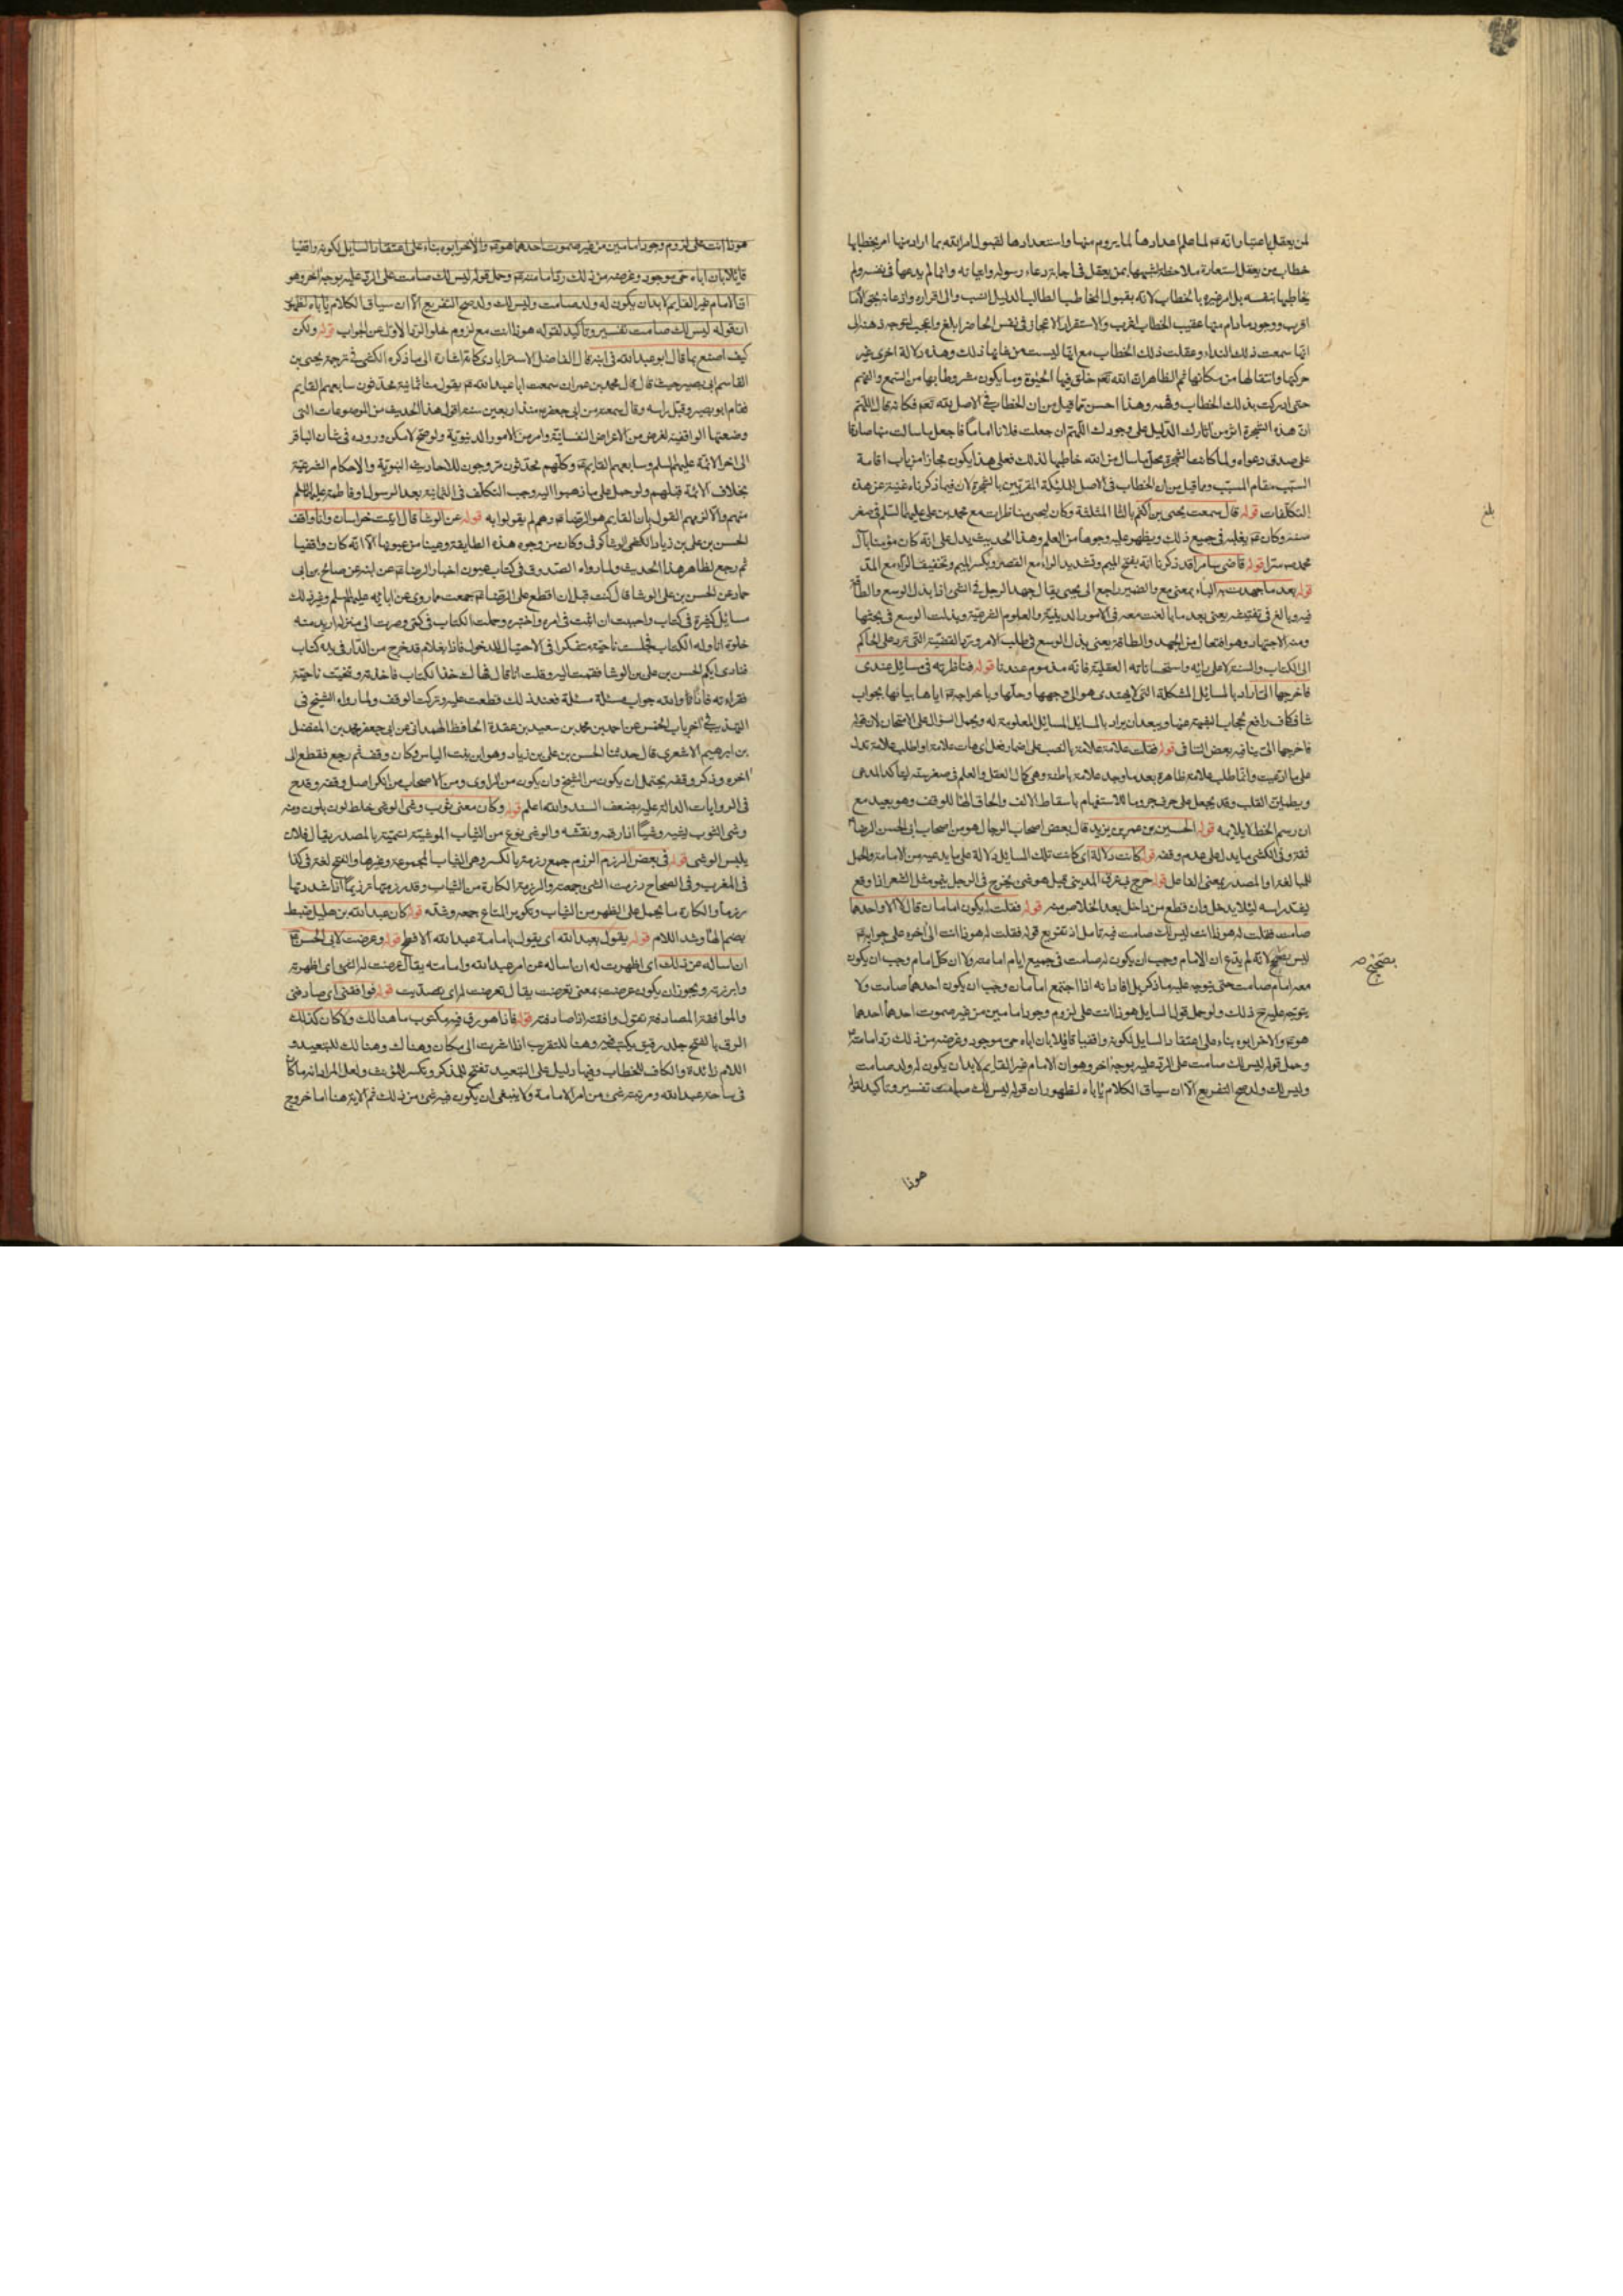 لمن يعقل باعتبار انه عم لما علم اعدادها لما يروم منها واستعدادها لقبول امر الله بما اراد منها امر بخطابها
خطاب من يعقل استعارة ملاحظة لشبهها بمن يعقل في اجابة دعاء رسوله واتيانه وانما لم يدعها في نفسه ولم
يخاطبها بنفسه بل امر غيره بالخطاب لانه بقبول المخاطب الطالب الدليل انسب والى اقراره واذعانه بمجئ
اقرب ووجود ما دام منها عقيب الخطاب اغرب والاستقرار الاعجاز في نفس الحاضر ابلغ واعجب
انها سمعت ذلك النداء وعقلت ذلك الخطاب مع انها ليست من شانها ذلك وهذه دلالة اخرى غير
حركتها وانتقالها من مكانها ثم الظاهر ان الله تعم خلق فيها الحيوة وما يكون مشروطا بها من السمع والفهم
حتى ادركت بذلك الخطاب وفهمه وهذا احسن مما قيل من ان الخطاب في الاصل لله تعم فكانه قال اللهم
ان هذه الشجرة اثر من آثارك الدليل على وجودك اللهم ان جعلت فلانا اماما فاجعل ما سالت منها صادقا
على صدق دعواه ولما كانت الشجرة محل ما سال من الله خاطبها لذلك فعلى هذا يكون مجازا من باب اقامة
السبب مقام المسبب وما قيل من ان الخطاب في الاصل للملئكة المقربين بالشجرة لان فيما ذكرناه غنية عن هذه
التكلفات قوله قال سمعت يحيى بن اكثم بالثا المثلثة وكان ليحيى مناظرات مع محمد بن علي عليهما السلم في صغر
سنه وكان عم يغلبه في جميع ذلك ويظهر عليه وجوها من العلم وهذا الحديث يدل على انه كان مؤمنا بآل
محمد سترا قوله قاضي سامرا قد ذكرنا انه بفتح الميم وتشديد الراء مع القصر وبكسر الميم وتخفيف الراء مع المد
قوله بعد ما جهدت به الباء بمعنى مع والضمير راجع الى يحيى يقال جهد الرجل في الشئ اذا بذل الوسع والطاقة
فيه وبالغ في تفتيشه يعني بعد ما بالغت معه في الامور الدينية والعلوم الفرعية وبذلت الوسع في بحثها
ومنه الاجتهاد وهو افتعال من الجهد والطاقة يعني بذل الوسع في طلب الامر وبرد القضية التي ترد على الحاكم
الى الكتاب والسنة لا على رايه واستحساناته العقلية فانه مذموم عندنا قوله فناظرته في مسائل عندي
فاخرجها الي اراد بالمسائل المشكلة التي لا يهتدي هو الى وجهها وحلها وباخراجه عم اياها بيانها بجواب
شاف كاف رافع لحجاب الشبهة عنها ويبعد ان يراد بالمسائل المسائل المعلومة له ويحمل السؤال على الامتحان لان قوله
فاخرجها الي ينافيه بعض التنافي قوله فقلت علامة علامة بالنصب على اضمار فعل اي هات علامة او اطلب علامة تدل
على ما ادعيت وانما طلب علامة ظاهرة بعد ما وجد علامة باطنة وهي كمال العقل والعلم في صغر سنه ليتأكد المدعى
ويطمئن القلب وقد يجعل على حرف جر وما للاستفهام باسقاط الالف والحاق الها للوقف وهو بعيد مع
ان رسم الخط لا يلايمه قوله الحسين بن عمر بن يزيد قال بعض اصحاب الرجال هو من اصحاب ابي الحسن الرضا عم
ثقة وفي الكشي ما يدل على عدم وقفه قوله كانت دلالة اي كانت تلك المسائل دلالة على ما يدعيه من الامامة والحمل
للمبالغة او المصدر بمعنى الفاعل قوله خرج بي عرق المديني قيل هو شئ يخرج في الرجل ينمو مثل الشعر اذا وقع
يعقد راسه لئلا يدخل وان قطع من داخل بعد الخلاص منه قوله فقلت له يكون امامان قال لا الا واحدهما
صامت فقلت له هوذا انت ليس لك صامت فيه تامل اذ تفريع قوله فقلت له هوذا انت الى اخره على جوابه عم
ليس بصحيح لانه لم يدع ان الامام وجب ان يكون له صامت في جميع ايام امامته ولا ان كل امام وجب ان يكون
معه امام صامت حتى يتوجه عليه ما ذكر بل افاد انه اذا اجتمع امامان وجب ان يكون احدهما صامت ولا
يتوجه عليه ح ذلك ولو حمل قول السايل هوذا انت على لزوم وجود امامين من غير صموت احدهما احدهما
هو عم والاخر ابوه بناء على اعتقاد السايل لكونه واقفيا قايلا بان اباه حي موجود وغرضه من ذلك رد امامته عم
وحمل قوله ليس لك صامت على الرد عليه بوجه اخر وهو ان الامام غير القايم لابد ان يكون له ولد صامت
وليس لك ولد صح التفريع الا ان سياق الكلام ياباه لظهور ان قوله ليس لك صامت تفسير وتاكيد لقوله
هوذا
بلغ
بصحيح
هوذا انت على لزوم وجود امامين من غير صموت احدهما هو عم والاخر ابوه بناء على اعتقاد السايل لكونه واقفيا
قايلا بان اباه حي موجود وغرضه من ذلك رد امامته عم وحمل قوله ليس لك صامت على الرد عليه بوجه اخر وهو
ان الامام غير القايم لابد ان يكون له ولد صامت وليس لك ولد صح التفريع الا ان سياق الكلام ياباه لظهور
ان قوله ليس لك صامت تفسير وتاكيد لقوله هوذا انت مع لزوم خلو الزمان الاول عن الجواب قوله ولكن
كيف اصنع بما قال ابو عبد الله في ابنه قال الفاضل الاسترابادي كانه اشارة الى ما ذكره الكشي في ترجمة يحيى بن
القاسم ابي بصير حيث قال قال محمد بن عمران سمعت ابا عبد الله عم يقول منا ثمانية محدثون سابعهم القايم
فقام ابو بصير وقبل راسه وقال سمعته من ابي جعفر عم منذ اربعين سنة اقول هذا الحديث من الموضوعات التي
وضعتها الواقفية لغرض من الاغراض النفسانية وامر من الامور الدنيوية ولو صح لامكن وروده في شان الباقر
الى اخر الائمة عليهم السلم وسابعهم القايم عم وكلهم محدثون مروجون للاحاديث النبوية والاحكام الشرعية
بخلاف الائمة قبلهم ولو حمل على ما ذهبوا اليه وجب التكلف في الثمانية بعد الرسول او فاطمة عليها السلم
منهم والا لزمهم القول بان القايم هو الرضا عم وهم لم يقولوا به قوله عن الوشا قال اتيت خراسان وانا واقف
الحسن بن علي بن زياد الكشي الوشا كوفي وكان من وجوه هذه الطايفة وعينا من عيونها الا انه كان واقفيا
ثم رجع لظاهر هذا الحديث ولما رواه الصدوق في كتاب عيون اخبار الرضا عم عن ابيه عن صالح بن ابي
حماد عن الحسن بن علي الوشا قال كنت قبل ان اقطع على الرضا عم جمعت مما روي عن ابائه عليهم السلم وغير ذلك
مسائل كثيرة في كتاب واحببت ان اثبت في امره واختبره وحملت الكتاب في كمي وصرت الى منزله اريد منه
خلوة اناوله الكتاب فجلست ناحية متفكرا في الاحتيال للدخول فاذا بغلام قد خرج من الدار في يده كتاب
فنادى ايكم الحسن بن علي بن الوشا فقمت اليه وقلت انا قال فهاك خذ الكتاب فاخذته وتنحيت ناحية
فقراته فاذا والله جواب مسئلة مسئلة فعند ذلك قطعت عليه وتركت الوقف ولما رواه الشيخ في
التهذيب في اخر باب الخمس عن احمد بن محمد بن سعيد بن عقدة الحافظ الهمداني عن ابي جعفر محمد بن المفضل
بن ابرهيم الاشعري قال حدثنا الحسن بن علي بن زياد وهو ابن بنت الياس وكان وقف ثم رجع فقطع الى
اخره وذكر وقفه يحتمل ان يكون من الشيخ وان يكون من الراوي ومن الاصحاب من انكر اصل وقفه وقدح
في الروايات الدالة عليه بضعف السند والله اعلم قوله وكان معي ثوب وشي الوشي خلط لون بلون ومنه
وشى الثوب يشيه وشيا اذا رقمه ونقشه والوشي نوع من الثياب الموشية تسمية بالمصدر يقال فلان
يلبس الوشي قوله في بعض الرزم الرزم جمع رزمة بالكسر وهي الثياب المجموعة وغيرها والفتح لغة في كذا
في المغرب وفي الصحاح رزمت الشئ جمعته والرزمة الكارة من الثياب وقد رزمتها ترزيما اذا شددتها
رزما والكارة ما يحمل على الظهر من الثياب وتكوير المتاع جمعه وشده قوله كان عبد الله بن هليل ضبط
بضم الها وشد اللام قوله يقول بعبد الله اي يقول بامامة عبد الله الافطح قوله وعرضت لابي الحسن عم
ان اساله عن ذلك اي اظهرت له ان اساله عن امر عبد الله وامامته يقال عرضت له الشئ اي اظهرته
وابرزته ويجوز ان يكون عرضت بمعنى تعرضت يقال تعرضت له اي تصديت قوله فوافقني اي صادفني
والموافقة المصادفة تقول وافقته اذا صادفته قوله فاذا هو رق فيه مكتوب ما هنالك ولا كان كذلك
الرق بالفتح جلد رقيق يكتب فيه وهنا للتقريب اذا اشرت الى مكان وهناك وهنالك للتبعيد و
اللام زائدة والكاف للخطاب وفيها دليل على التبعيد تفتح للمذكر وتكسر للمؤنث ولعل المراد انه ما كان
في ساحة عبد الله ومرتبته شئ من امر الامامة ولا ينبغي ان يكون فيه شئ من ذلك